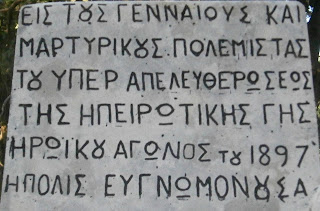 ΕΙΣ ΤȣΣ ΓΕΝΝΑΙΟΥΣ ΚΑΙ
ΜΑΡΤΥΡΙΚȣΣ ΠΟΛΕΜΙΣΤΑΣ
Τȣ ΥΠΕΡ ΑΠΕΛΕΥΘΕΡΩΣΕΩΣ
ΤΗΣ ΗΠΕΙΡΩΤΙΚΗΣ ΓΗΣ
ΗΡΩΙΚȣ ΑΓΩΝΟΣ Τȣ 1897
Η ΠΟΛΙΣ ΕΥΓΝΩΜΟΝȣΣΑ